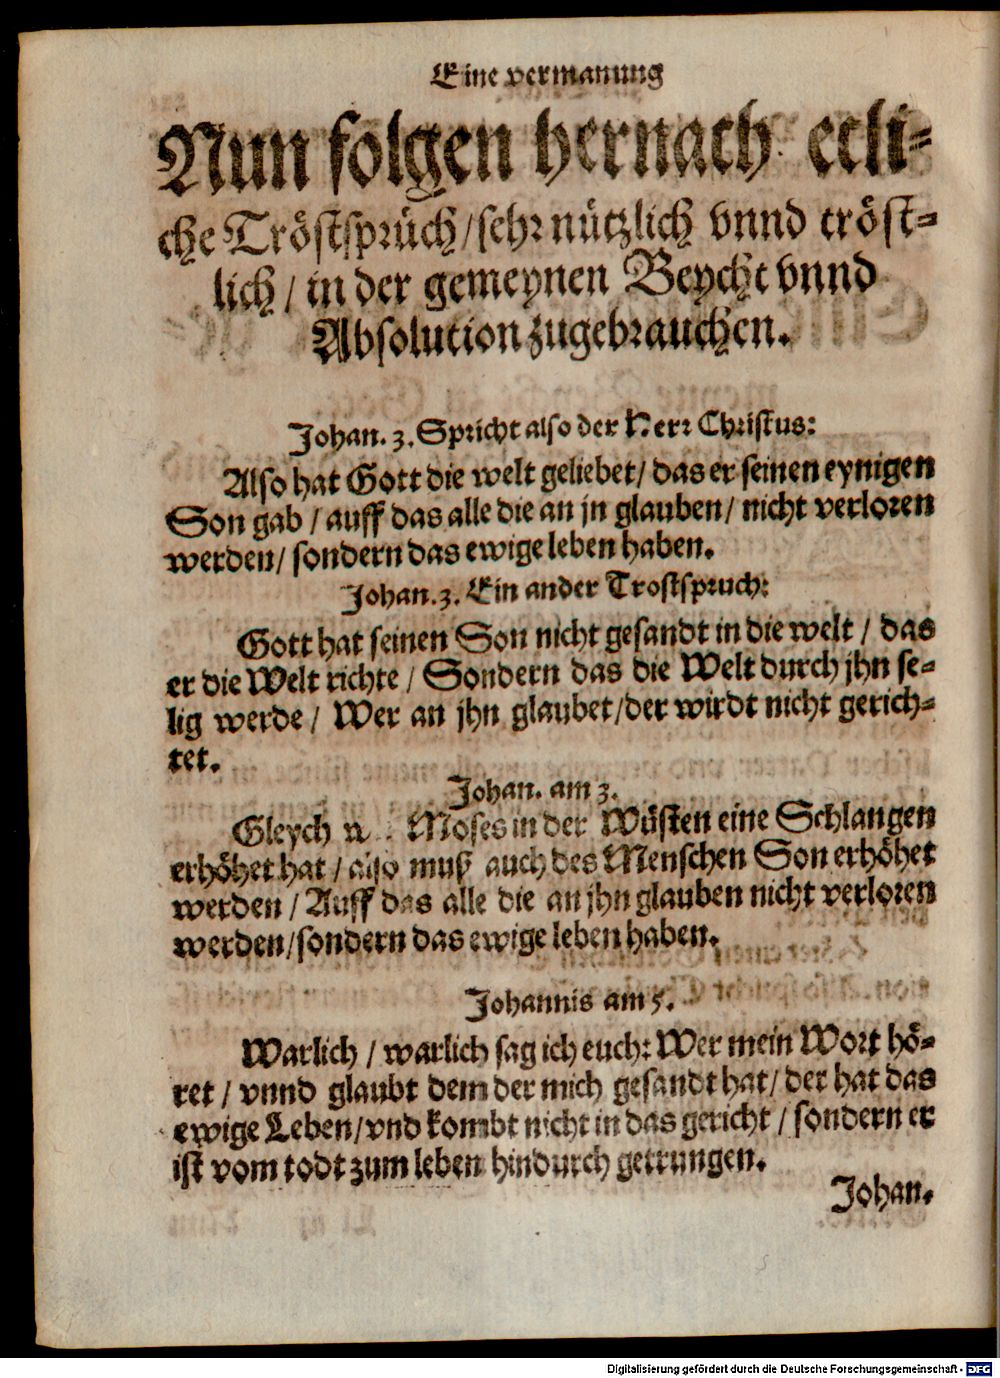 Eine vermanung
Nun folgen hernach etli-
che Tröstsprüch/ sehr nützlich vnnd tröst-
lich/ in der gemeynen Beycht vnnd
Absolution zugebrauchen.
Johan. 3. Spricht also der Herr Christus:
Also hat Gott die welt geliebet/ das er seinen eynigen
Son gab/ auff das alle die an jn glauben/ nicht verloren
werden/ sondern das ewige leben haben.
Johan. 3. Ein ander Trostspruch:
Gott hat seinen Son nicht gesandt in die welt/ das
er die Welt richte/ Sondern das die Welt durch jhn se-
lig werde/ Wer an jhn glaubet/ der wirdt nicht gerich-
tet.
Johan. am 3.
Gleych Moses in der Wüsten eine Schlangen
erhöhet hat/ also muß auch des Menschen Son erhöhet
werden/ Auff das alle die an jhn glauben nicht verloren
werden/ sondern das ewige leben haben.
Johannis am 5.
Warlich/ warlich sag ich euch: Wer mein Wort hö-
ret/ vnnd glaubt dem der mich gesandt hat/ der hat das
ewige Leben/ vnd kombt nicht in das gericht/ sondern er
ist vom todt zum leben hindurch getrungen.
Johan.
Digitalisierung gefördert durch die Deutsche Forschungsgemeinschaft - DFG